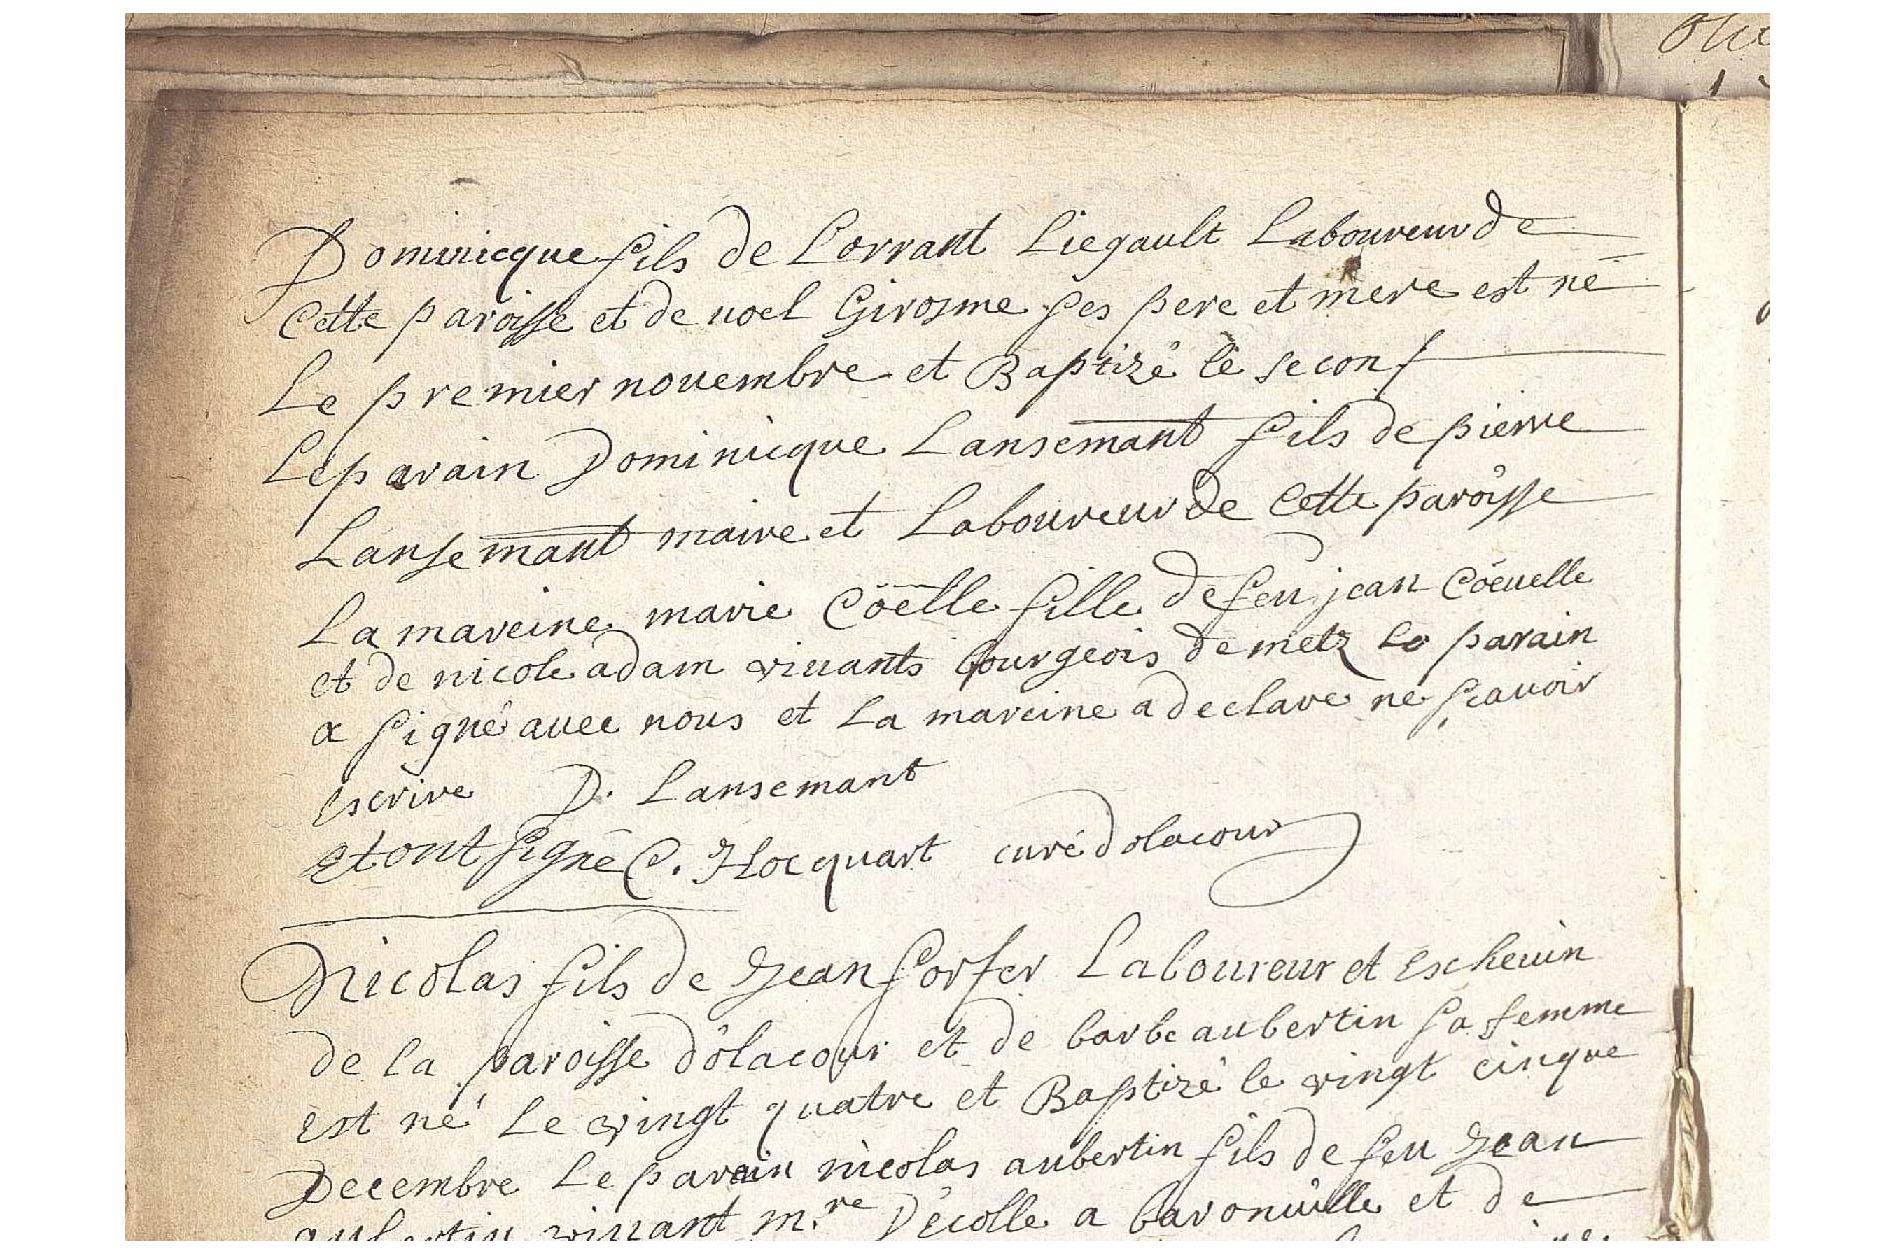 Dominicque fils de Lorrant Liegault Laboureur de
Cette paroisse et de noel Girosme ses pere et mere est né
Le premier nouembre et Baptizé le second
Le parain Dominicque Lansemant fils de pierre
Lansemant maire et Laboureur de Cette paroisse
La mareine marie Coëlle fille de feu jean Coëuelle
et de nicole adam viuants bourgeois de metz Le parain
a signé auec nous et La mareine a declare ne scauoir
escrire D. Lansemant
et ont signé C. Hocquart curé dolacour
Nicolas fils de Jean forfer Laboureur et Escheuin
de la paroisse dolacour et de barbe aubertin sa femme
est né Le vingt quatre et Baptizé le vingt cinque
Decembre Le parain nicolas aubertin fils de feu Jean
aubertin viuant m.re Décolle a baronuille et de